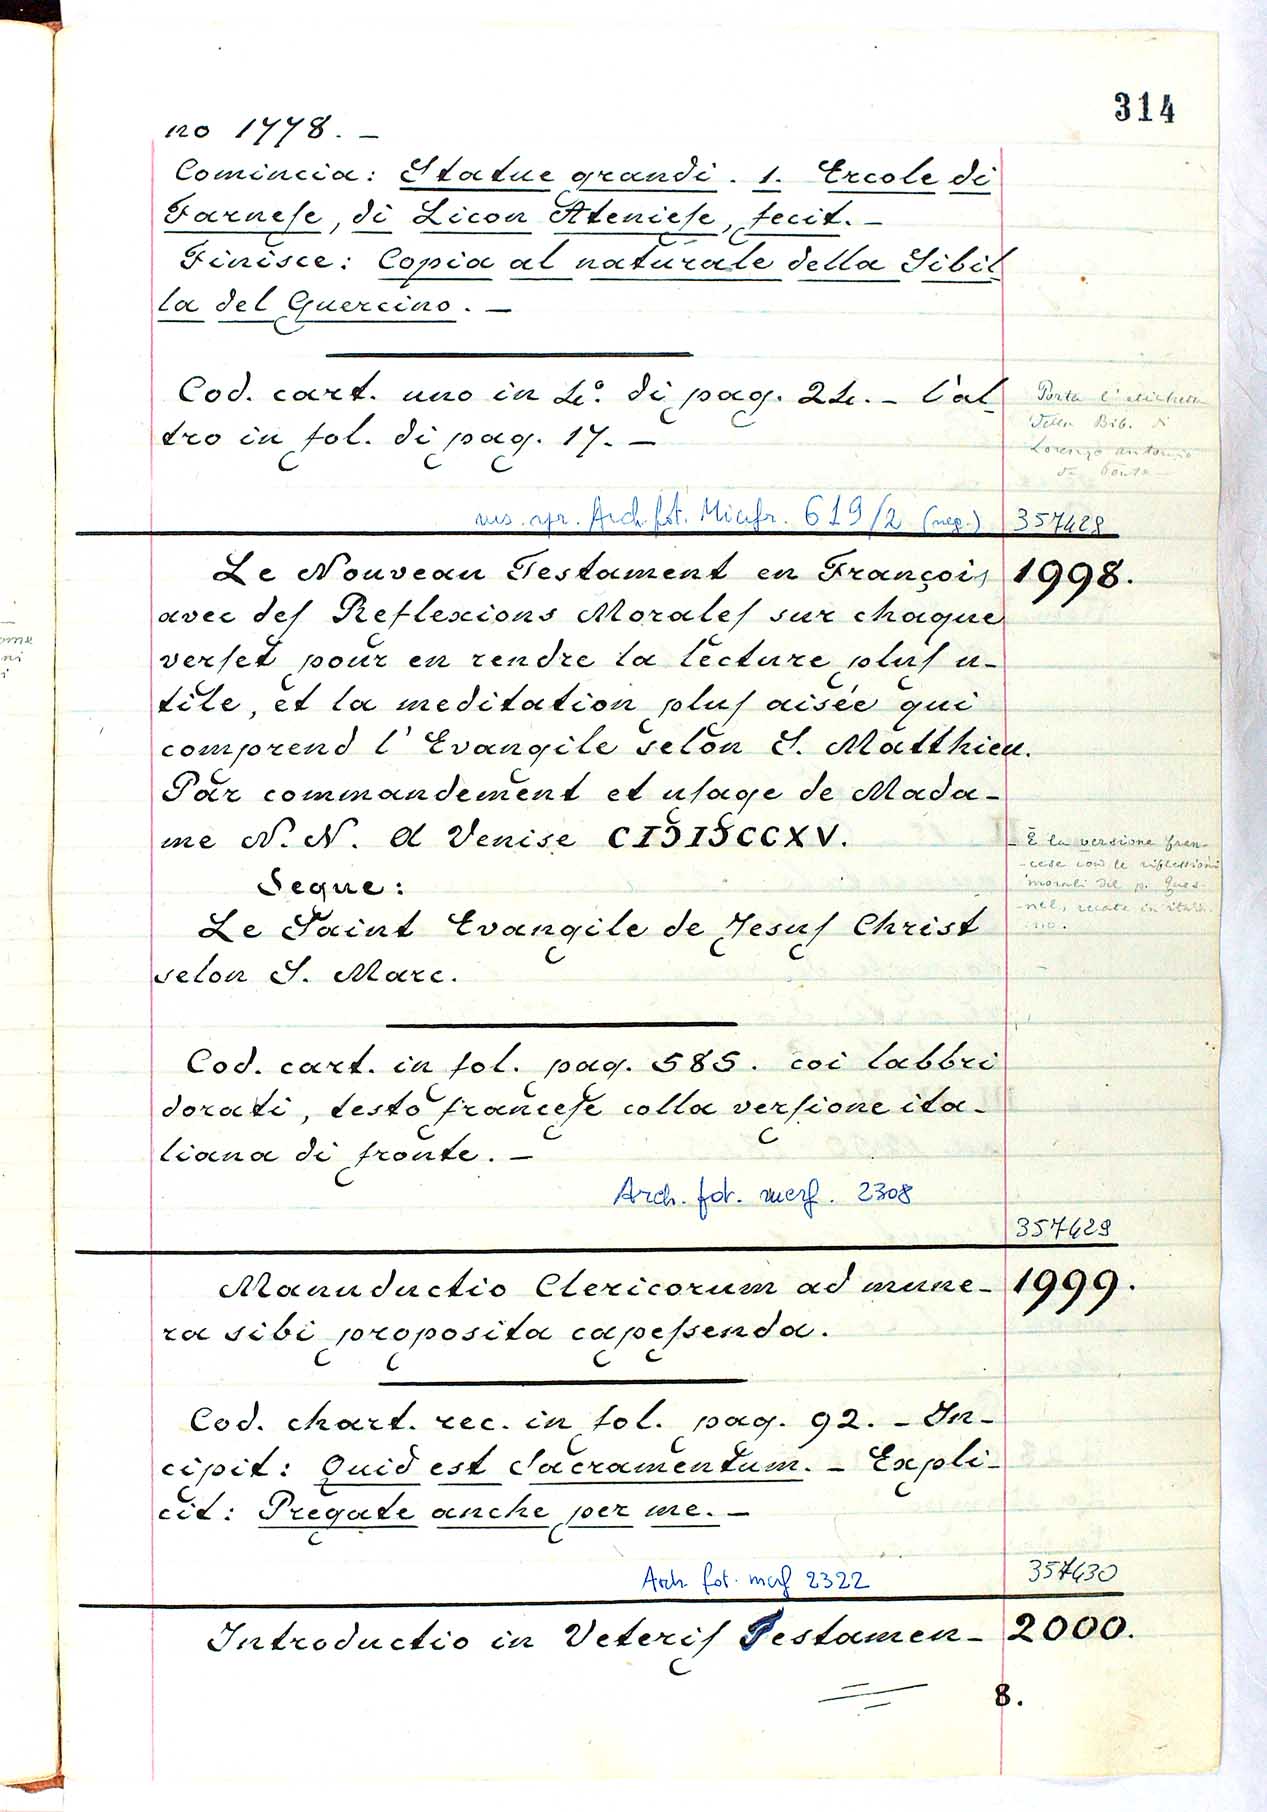 314
no 1778. –
Comincia: Statue grandi. 1. Ercole di
Farneſe, di Licon Atenieſe, fecit. –
Finisce: Copia al naturale della Sibil
la del Guercino. –
Cod. cart. uno in 4.º di pag. 24. – l'al
tro in fol. di pag. 17. –
Porta l'etichetta
della Bib. di
Lorenzo Antonio
da Ponte –
ms. Arch. fot. Micfr. 619/2 (neg.) 357428
Le Nouveau Testament en François 1998.
avec deſ Reflexions Moraleſ sur chaque
verſet pour en rendre la lecture pluſ u-
tile, et la meditation pluſ aisée qui
comprend l'Evangile selon S. Matthieu.
Par commandement et uſage de Mada-
me N. N. A Venise CIƆIƆCCXV.
È la versione fran-
cese con le riflessioni
morali del p. Ques-
nel, recate in italia-
no.
Segue:
Le Saint Evangile de Jesuſ Christ
selon S. Marc.
Cod. cart. in fol. pag. 585. coi labbri
dorati, testo franceſe colla verſione ita-
liana di fronte. –
Arch. fot. mcrf. 2308
357429
Manuductio Clericorum ad mune- 1999.
ra sibi proposita capeſsenda.
Cod. chart. rec. in fol. pag. 92. – In-
cipit: Quid est Sacramentum. – Expli-
cit: Pregate anche per me. –
Arch. fot. mcrf 2322 357430
Introductio in Veteriſ Testamen- 2000.
8.